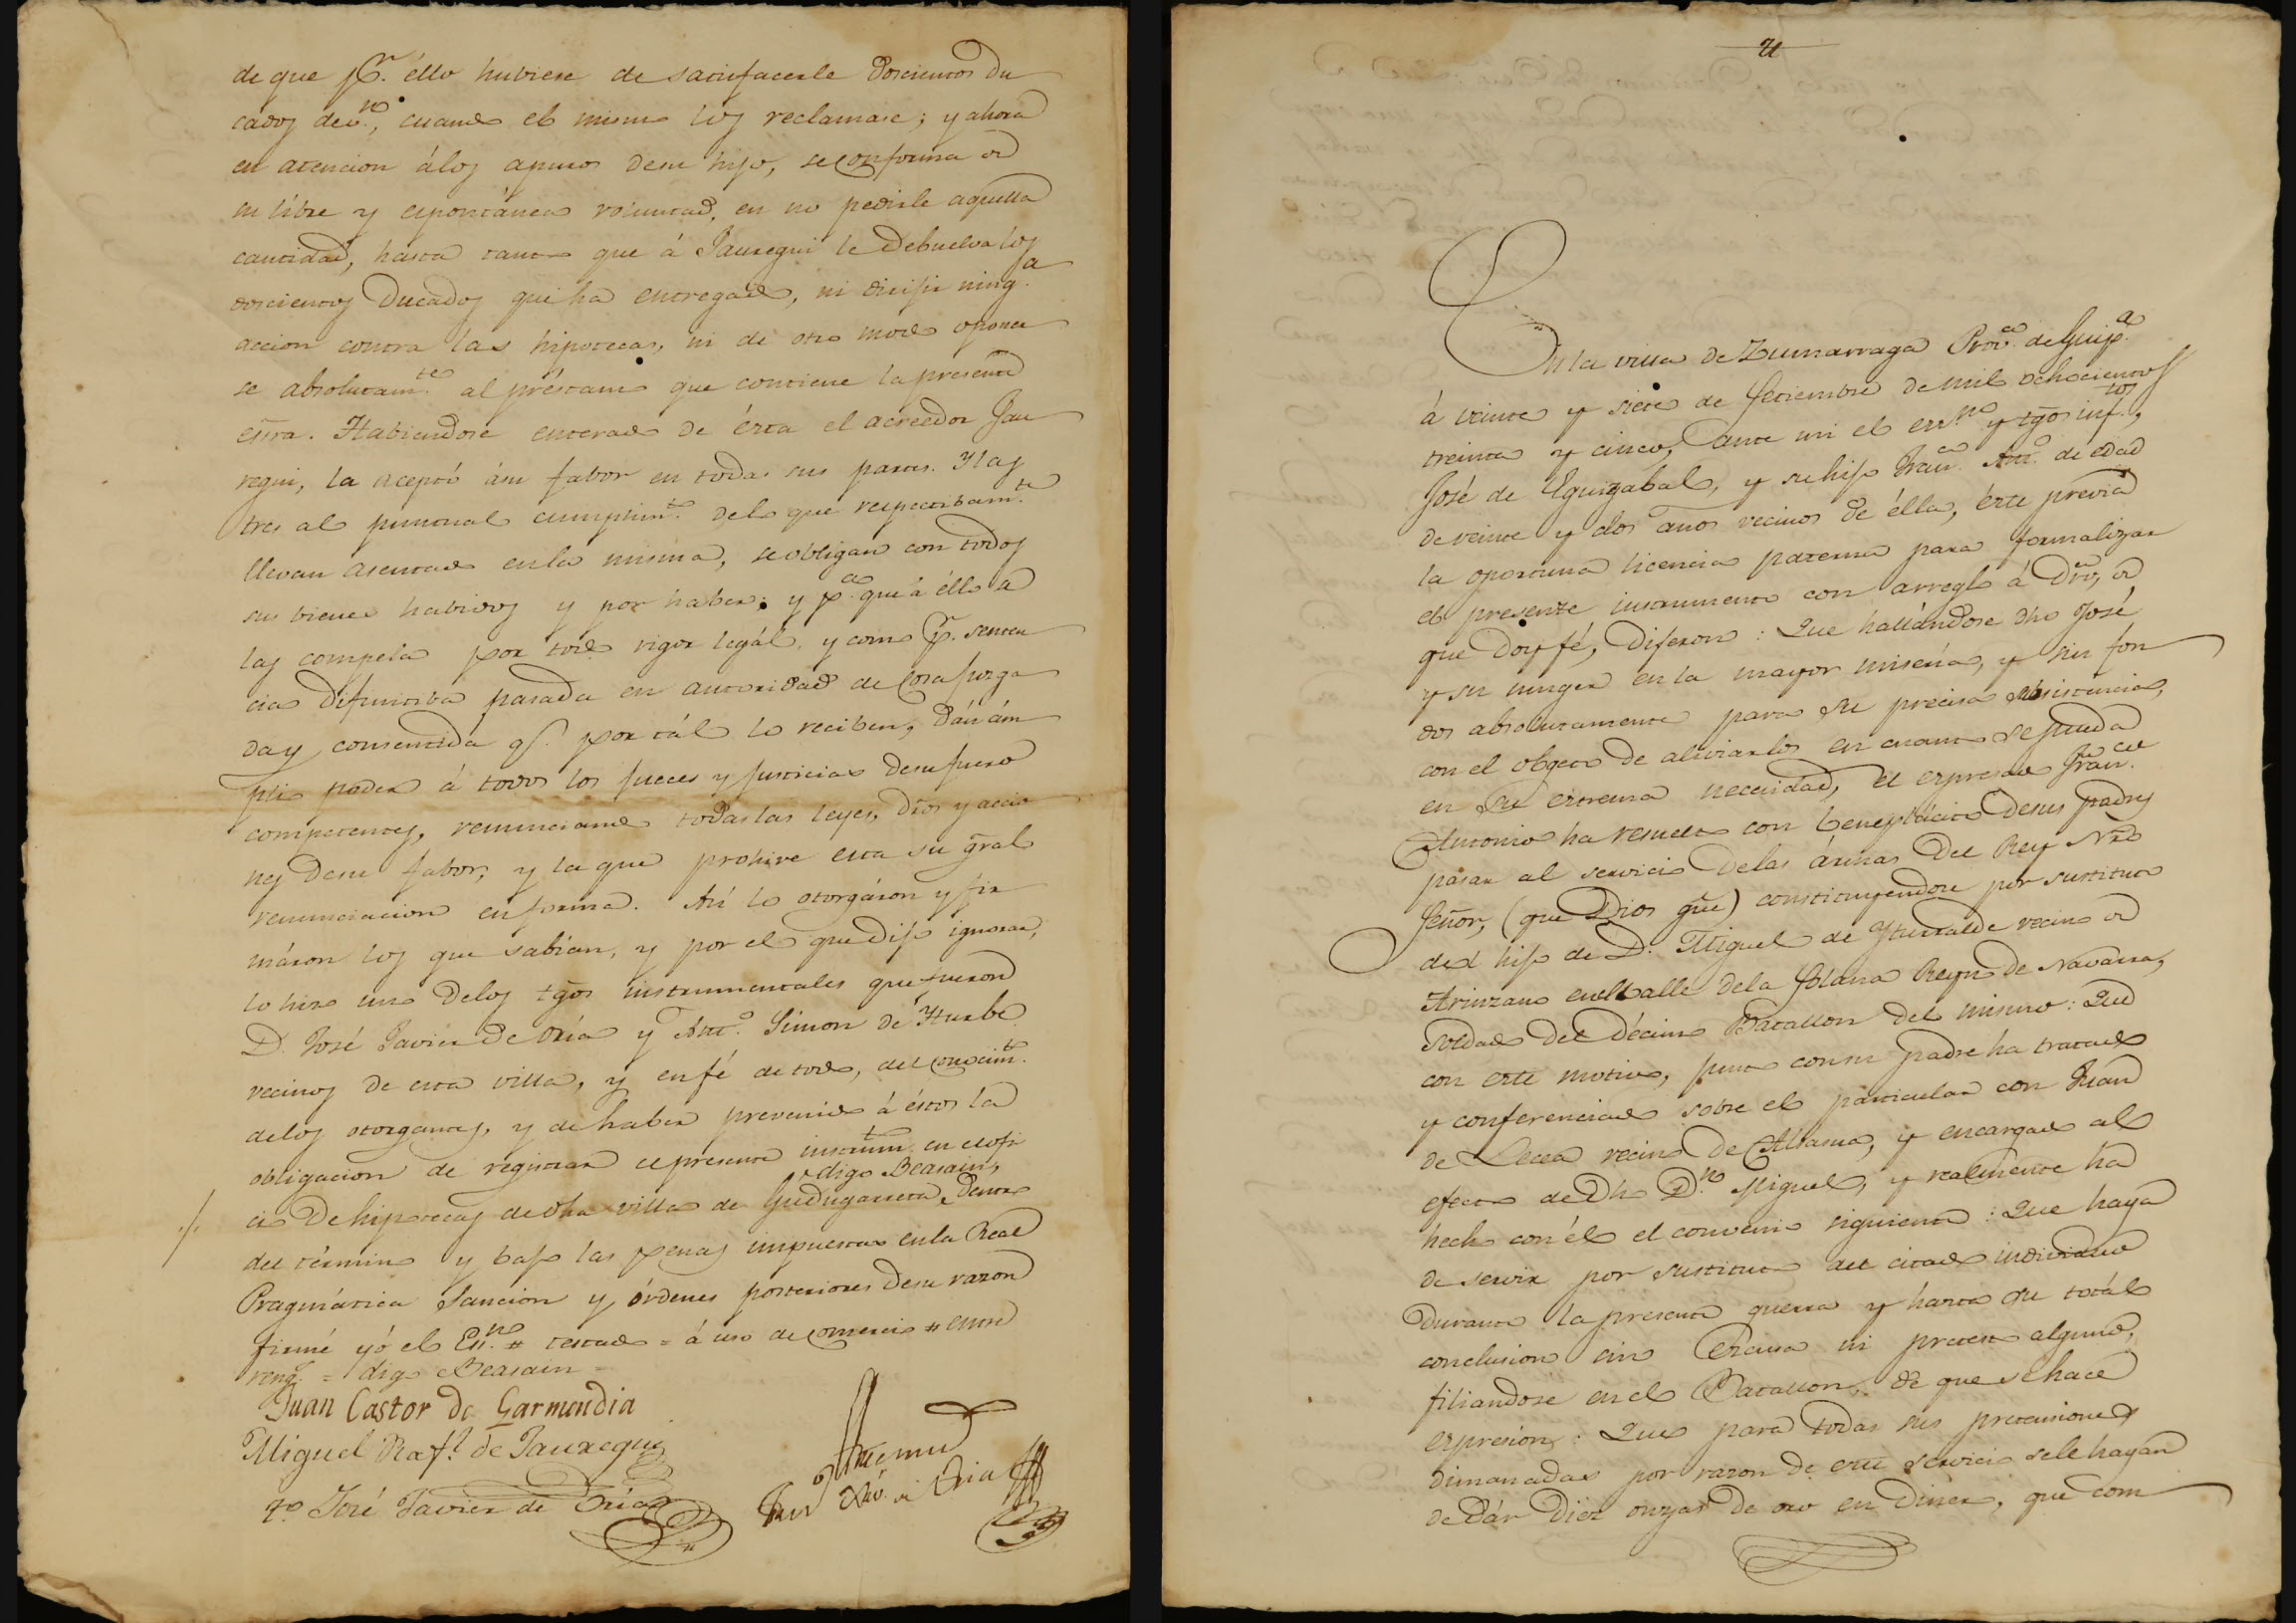 de que pr. éllo hubiese de satisfacerle doscientos du
cados de vn., cuando el mismo los reclamase; y ahora
en atencion á los apuros de su hijo, se conforma de
su libre y espontánea voluntad, en no pedirle aquella
cantidad, hasta tanto que á Jauregui le debuelva los
doscientos Ducados que ha entregado, ni dirijir ninga.
accion contra las hipotecas, ni de otro modo oponer
se absolutamte. al préstamo que contiene la presente
esñra. Habiendose enterado de ésta el acreedor Jau
regui, la aceptó á su fabor en todas sus partes. Y los
tres al puntual cumplimto. de lo que respectibamte.
llevan asentado en la misma, se obligan con todos
sus bienes habidos y por haber; y pa. que á éllo a
los compela por todo rigor legál, y como pr. senten
cia difinitiba pasada en autoridad de cosa juzga
da y consentida qe. por tál lo reciben, dán ám
plio poder á todos los jueces y justicias de su fuero
competentes, renunciando todas las leyes, dros y accio
nes de su fabor, y la que prohive esta su gral
renunciacion en forma. Así lo otorgáron y fir
máron los que sabían, y por el que dijo ignorar,
lo hizo uno de los tgos instrumentales que fueron
D. José Javier de Oria y Anto. Simon de Yturbe
vecinos de esta villa, y en fé de todo, del conocimto.
de los otorgantes, y de haber prevenido á éstos la
obligacion de registrar el presente instrumto. en el ofi
digo Beasain,
cio de hipotecas de dha villa de Gudugarreta, dentro
del término y bajo las penas impuestas en la Real
Pragmática Sancion y órdenes posteriores de su razon
firmé yó el Esno. = testado = á uso de comercio = entre
rengs. = digo Beasain =
Juan Castor de Garmendia
Miguel Rafl. de Jauregui
to. José Javier de Oria
Ante mi
José Xavr. de Oria
En la villa de Zumarraga Prova. de Guipa.
á veinte y siete de Setiembre de mil ochocientos
treinta y cinco, ante mi el essno y tgos inftos,
José de Eguizabal, y su hijo Franco. Anto. de edad
de veinte y dos años vecinos de élla, éste previa
la oportuna licencia paterna para formalizar
el presente instrumento con arreglo á Dro, de
que doy fé, Dijeron: Que hallándose dho José
y su muger en la mayor miseria, y sin fon
dos absolutamente para su precisa subsistencia,
con el objeto de aliviarlos en cuanto se pueda
en su extrema necesidad, el expresado Franco.
Antonio ha resuelto con beneplácito de sus padres
pasar al servicio de las ármas del Rey Nro
Señor, (que Dios gue) constituyendose por sustituto
del hijo de D. Miguel de Yturralde vecino de
Arinzano en el valle de la Solana Reyno de Navarra,
soldado del Décimo Batallon del mismo: Que
con este motivo, junto con su padre ha tratado
y conferenciado sobre el particular con Juan
de Lecea vecino de Alsasua, y encargado al
efecto de dho Dn. Miguel, y realmente ha
hecho con él el convenio siguiente: Que haya
de servir por sustituto del citado individuo
durante la presente guerra y hasta su totál
conclusion sin escusa ni pretesto alguno,
filiandose en el Batallon, de que se hace
expresion: Que para todas sus pretensiones
dimanadas por razon de este servicio se le hayan
de dár Diez onzas de oro en dinero, que com